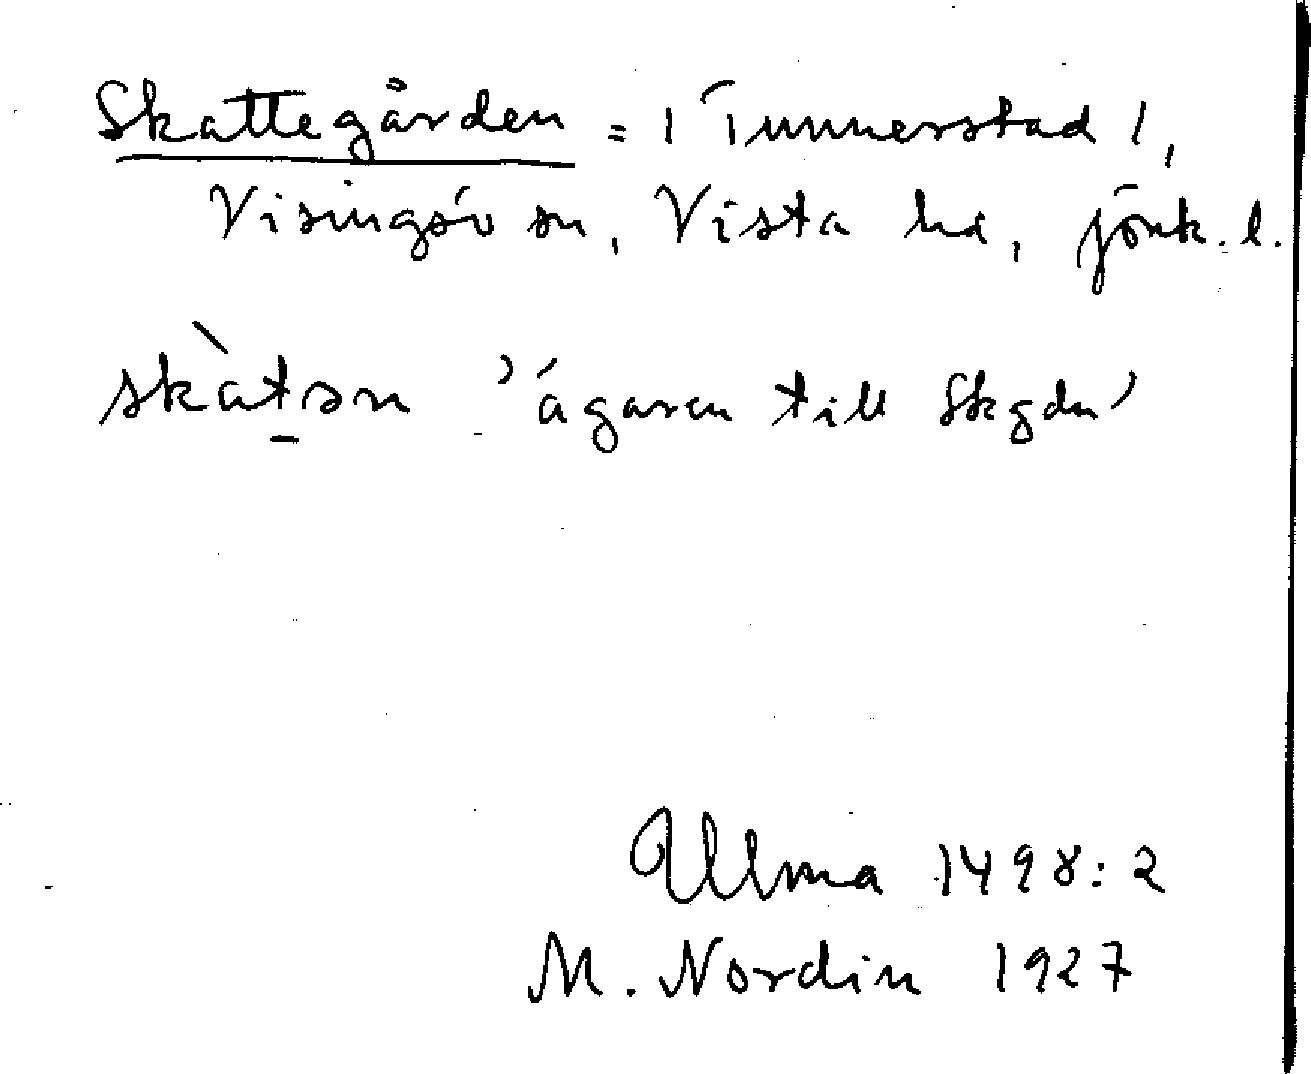 Skattegården = / Tunnerstad /,
Visingsö sn, Vista hd, Jönk. l.
skàtən 'ägaren till Skgdn'
Ulma 1498:2
M. Nordin 1927